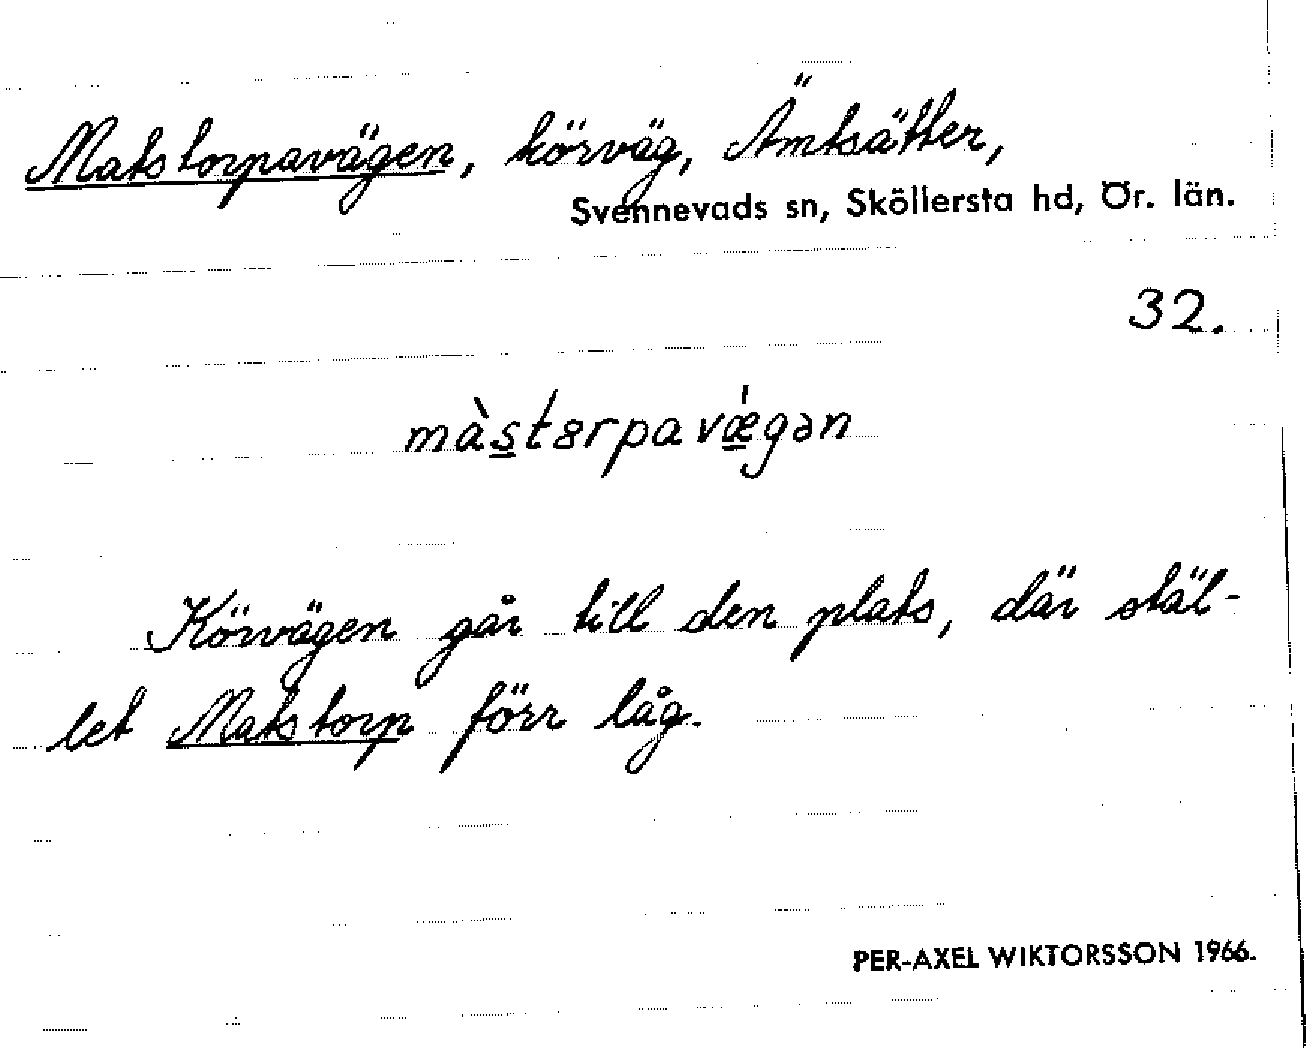 Matstorpavägen, körväg, Ämtsätter,
Svennevads sn, Sköllersta hd, Ör. län.
32.
màs̲tɞrpavǽ̲gən
Körvägen går till den plats, där stäl-
let Matstorp förr låg.
PER-AXEL WIKTORSSON 1966.